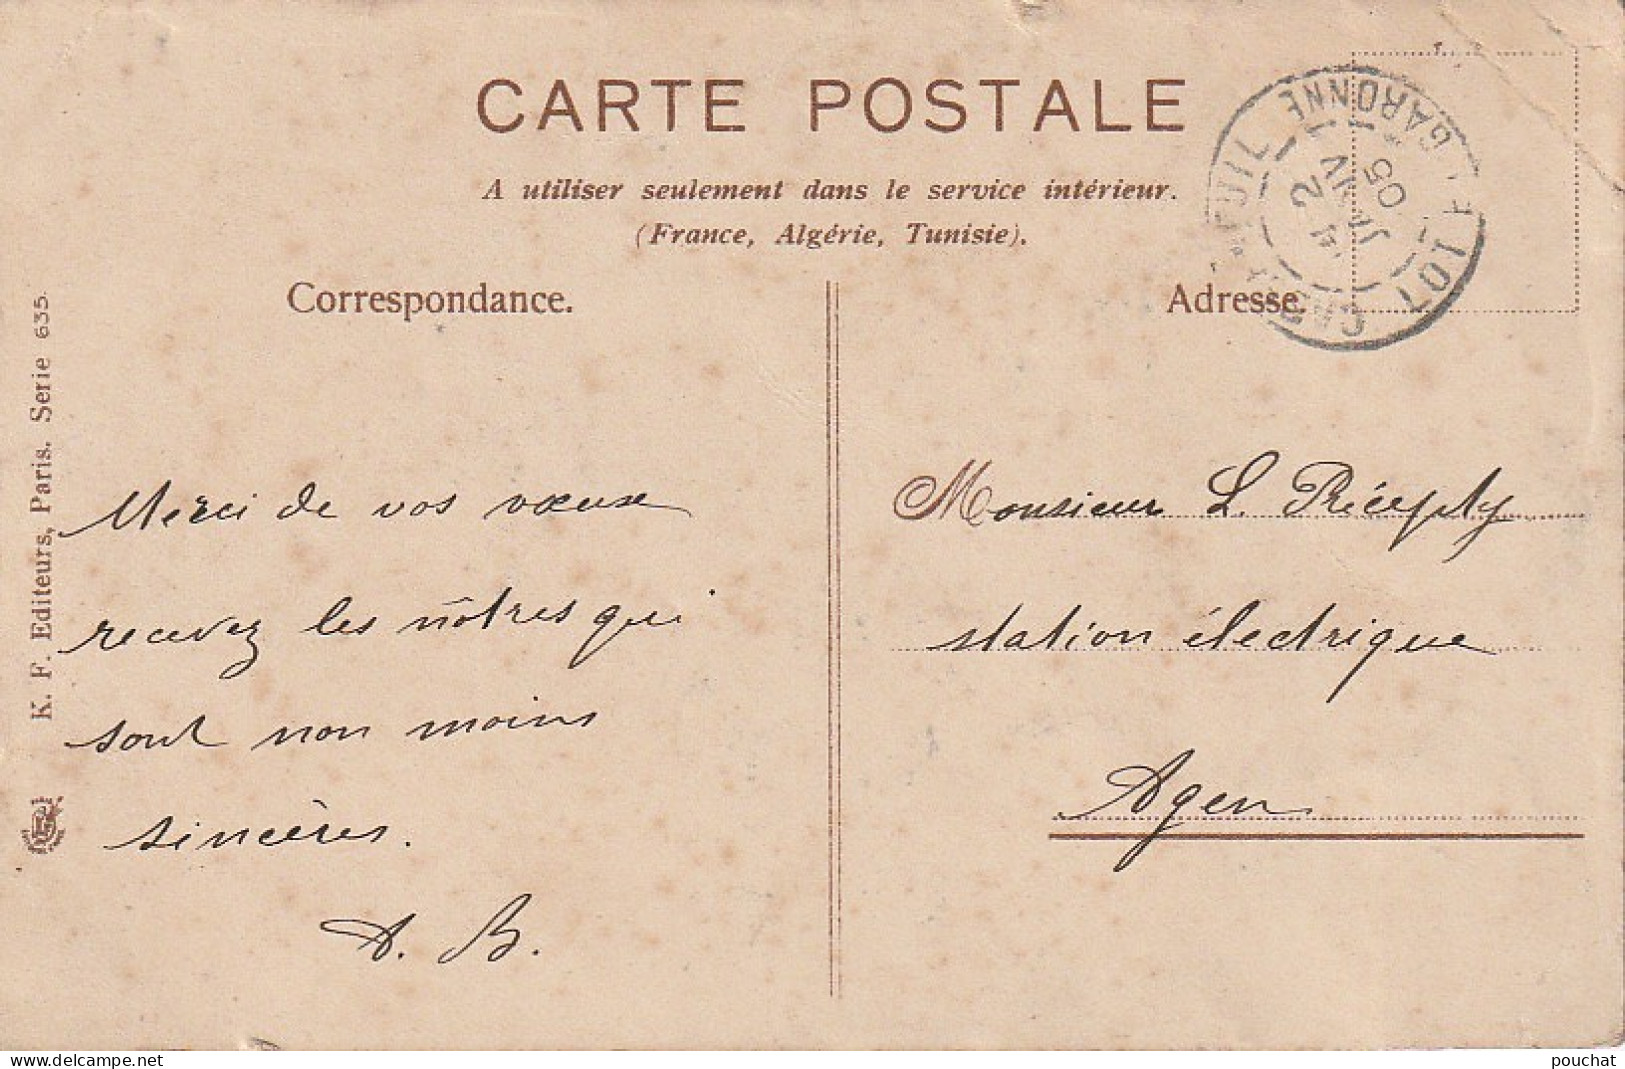 CARTE POSTALE
A utiliser seulement dans le service intérieur.
(France, Algérie, Tunisie).
Correspondance.
Adresse.
LOT ET GARONNE
2 JANV 05
K. F. Editeurs, Paris. Serie 635.
Merci de vos vœux
recevez les nôtres qui
sont non moins
sincères.
A. B.
Monsieur L.
station électrique
Agen
www.delcampe.net
pouchat